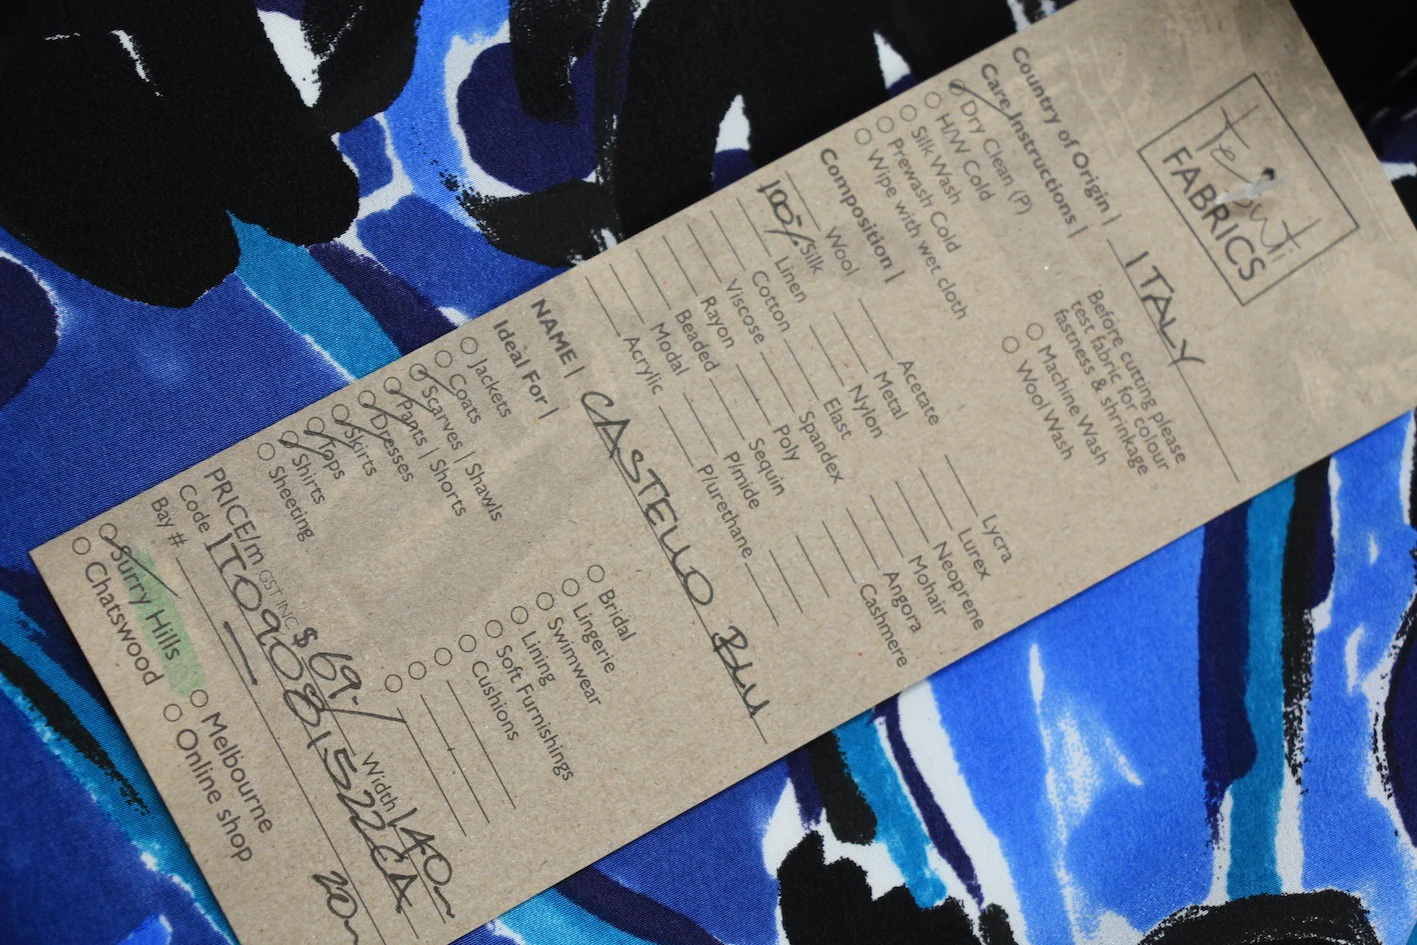 Tessuti
FABRICS
Country of Origin | ITALY
Care Instructions |
Dry Clean (P)
H/W Cold
Silk Wash
Prewash Cold
Wipe with wet cloth
Before cutting please
test fabric for colour
fastness & shrinkage
Machine Wash
Wool Wash
Composition |
Wool
100% Silk
Linen
Cotton
Viscose
Rayon
Beaded
Modal
Acrylic
Acetate
Metal
Nylon
Elast
Spandex
Poly
Sequin
P/mide
P/urethane
Lycra
Lurex
Neoprene
Mohair
Angora
Cashmere
NAME | CASTELLO BLU
Ideal For |
Jackets
Coats
Scarves | Shawls
Pants | Shorts
Dresses
Skirts
Tops
Shirts
Sheeting
Bridal
Lingerie
Swimwear
Lining
Soft Furnishings
Cushions
PRICE/m GST INC $69.- Width 140
Code ITO90815522CA
Bay # — 20
Surry Hills
Chatswood
Melbourne
Online shop